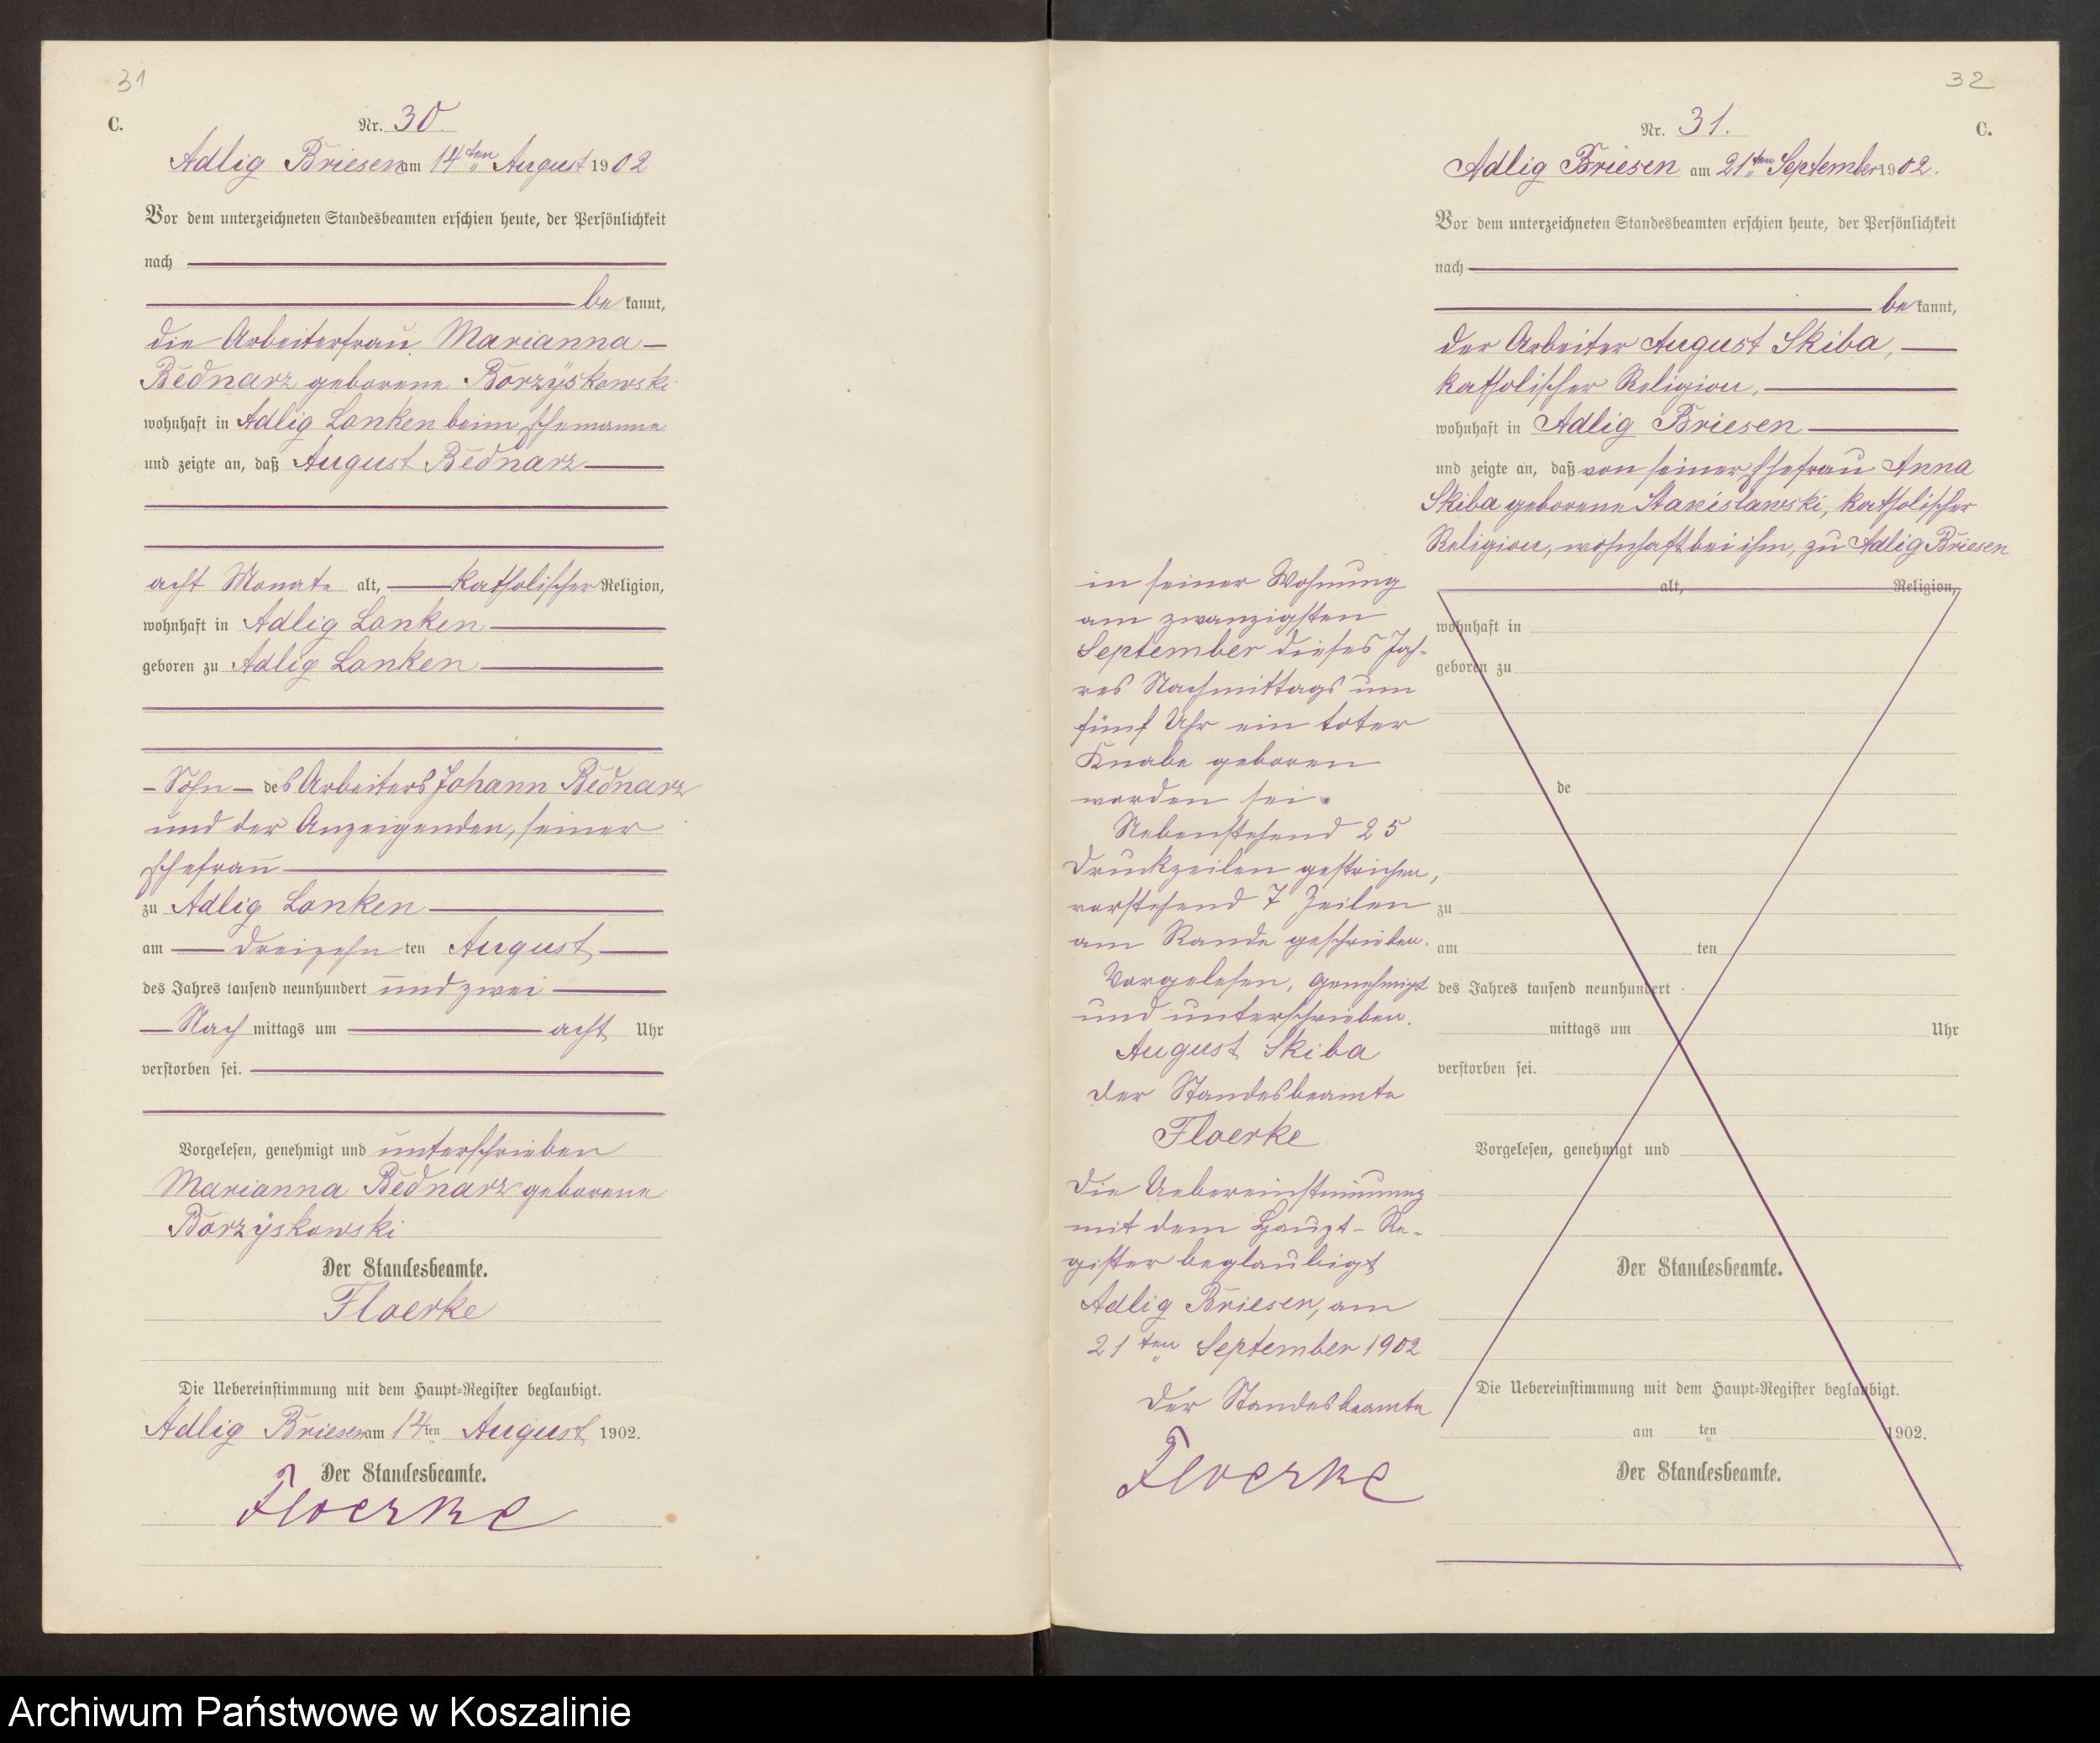 31
C.
Nr. 30.
Adlig Briesen am 14ten August 1902
Vor dem unterzeichneten Standesbeamten erschien heute, der Persönlichkeit
nach
be kannt,
die Arbeiterfrau Marianna
Bednarz geborene Borzyskowski
wohnhaft in Adlig Lanken beim Ehemanne
und zeigte an, daß August Bednarz
acht Monate alt, katholischer Religion,
wohnhaft in Adlig Lanken
geboren zu Adlig Lanken
Sohn des Arbeiters Johann Bednarz
und der Anzeigenden, seiner
Ehefrau
zu Adlig Lanken
am dreizehn ten August
des Jahres tausend neunhundert und zwei
Nach mittags um acht Uhr
verstorben sei.
Vorgelesen, genehmigt und unterschrieben
Marianna Bednarz geborene
Borzyskowski
Der Standesbeamte.
Floerke
Die Uebereinstimmung mit dem Haupt-Register beglaubigt.
Adlig Briesen am 14ten August 1902.
Der Standesbeamte.
Floerke
32
C.
Nr. 31.
Adlig Briesen am 21ten September 1902.
Vor dem unterzeichneten Standesbeamten erschien heute, der Persönlichkeit
nach
be kannt,
der Arbeiter August Skiba,
katholischer Religion,
wohnhaft in Adlig Briesen
und zeigte an, daß von seiner Ehefrau Anna
Skiba geborene Stanislawski, katholischer
Religion, wohnhaft bei ihm, zu Adlig Briesen
in seiner Wohnung
am zwanzigsten
September dieses Jah-
res Nachmittags um
fünf Uhr ein toter
Knabe geboren
worden sei.
Nebenstehend 25
Druckzeilen gestrichen,
vorstehend 7 Zeilen
am Rande geschrieben.
Vorgelesen, genehmigt
und unterschrieben.
August Skiba
Der Standesbeamte
Floerke
Die Uebereinstimmung
mit dem Haupt-Re-
gister beglaubigt
Adlig Briesen, am
21ten September 1902
Der Standesbeamte
Floerke
alt, Religion,
wohnhaft in
geboren zu
de
zu
am ten
des Jahres tausend neunhundert
mittags um Uhr
verstorben sei.
Vorgelesen, genehmigt und
Der Standesbeamte.
Die Uebereinstimmung mit dem Haupt-Register beglaubigt.
am ten 1902.
Der Standesbeamte.
Archiwum Państwowe w Koszalinie